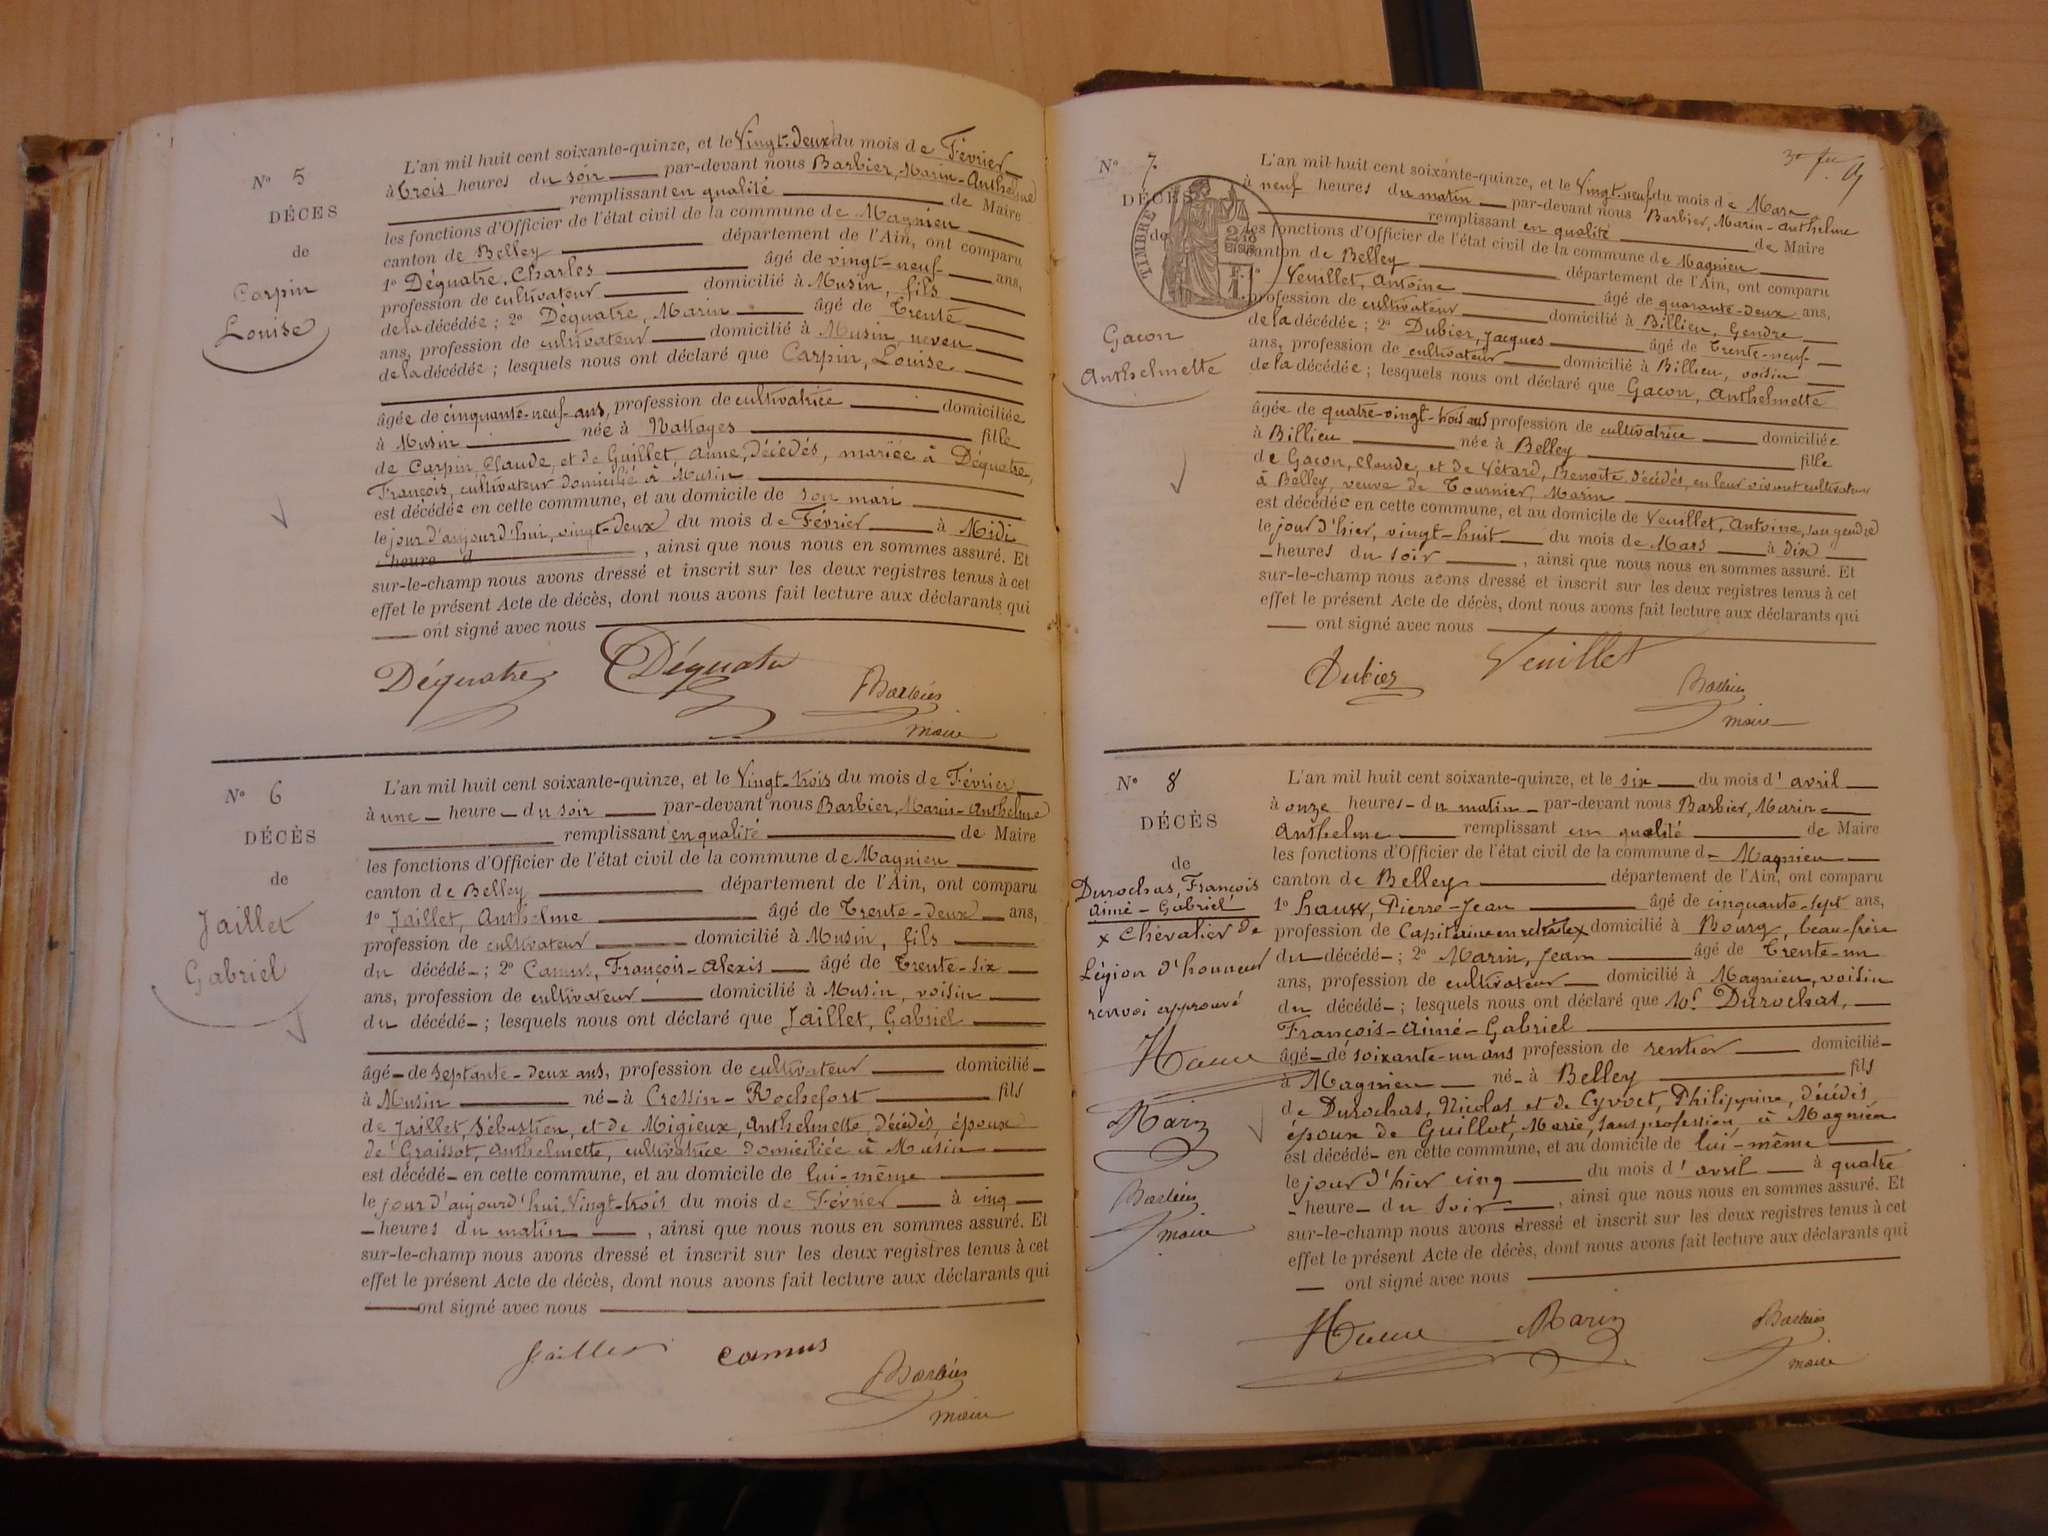 N° 5
DÉCES
de
Carpin
Louise
L'an mil huit cent soixante-quinze, et le Vingt-deux du mois de Février
à Trois heures du soir par-devant nous Barbier, Marin-Anthelme
remplissant en qualité de Maire
les fonctions d'Officier de l'état civil de la commune de Magnieu
canton de Belley département de l'Ain, ont comparu
1° Déquatre, Charles âgé de vingt-neuf ans,
profession de cultivateur domicilié à Musin, fils
de la décédée ; 2° Déquatre, Marin âgé de Trente
ans, profession de cultivateur domicilié à Musin, neveu
de la décédée ; lesquels nous ont déclaré que Carpin, Louise
âgée de cinquante-neuf ans, profession de cultivatrice domiciliée
à Musin née à Nattages fille
de Carpin, Claude, et de Guillet, Anne, décédés, mariée à Déquatre,
François, cultivateur domicilié à Musin
est décédée en cette commune, et au domicile de son mari
le jour d'aujourd'hui, vingt-deux du mois de Février à Midi
heure d , ainsi que nous nous en sommes assuré. Et
sur-le-champ nous avons dressé et inscrit sur les deux registres tenus à cet
effet le présent Acte de décès, dont nous avons fait lecture aux déclarants qui
ont signé avec nous
Déquatre Déquatre Barbier
maire
N° 6
DÉCÈS
de
Jaillet
Gabriel
L'an mil huit cent soixante-quinze, et le Vingt-trois du mois de Février
à une heure du soir par-devant nous Barbier, Marin-Anthelme
remplissant en qualité de Maire
les fonctions d'Officier de l'état civil de la commune de Magnieu
canton de Belley département de l'Ain, ont comparu
1° Jaillet, Anthelme âgé de Trente-deux ans,
profession de cultivateur domicilié à Musin, fils
du décédé ; 2° Camus, François-Alexis âgé de Trente-six
ans, profession de cultivateur domicilié à Musin, voisin
du décédé ; lesquels nous ont déclaré que Jaillet, Gabriel
âgé de septante-deux ans, profession de cultivateur domicilié
à Musin né à Cressin-Rochefort fils
de Jaillet, Sébastien, et de Migieux, Anthelmette, décédés, époux
de Graissot, Anthelmette, cultivatrice domiciliée à Musin
est décédé en cette commune, et au domicile de lui-même
le jour d'aujourd'hui, Vingt-trois du mois de Février à cinq
heures du matin , ainsi que nous nous en sommes assuré. Et
sur-le-champ nous avons dressé et inscrit sur les deux registres tenus à cet
effet le présent Acte de décès, dont nous avons fait lecture aux déclarants qui
ont signé avec nous
Jaillet camus Barbier
maire
3e
N° 7
DÉCÈS
de
TIMBRE
Gacon
Anthelmette
L'an mil huit cent soixante-quinze, et le Vingt-neuf du mois de Mars
à neuf heures du matin par-devant nous Barbier, Marin-Anthelme
remplissant en qualité de Maire
les fonctions d'Officier de l'état civil de la commune de Magnieu
canton de Belley département de l'Ain, ont comparu
1° Veuillet, Antoine âgé de quarante-deux ans,
profession de cultivateur domicilié à Billieu, Gendre
de la décédée ; 2° Dubier, Jacques âgé de Trente-neuf
ans, profession de cultivateur domicilié à Billieu, voisin
de la décédée ; lesquels nous ont déclaré que Gacon, Anthelmette
âgée de quatre-vingt-trois ans profession de cultivatrice domiciliée
à Billieu née à Belley fille
de Gacon, Claude, et de Vétard, Benoîte, décédés, en leur vivant cultivateurs
à Belley, veuve de Tournier, Marin
est décédée en cette commune, et au domicile de Veuillet, Antoine, son gendre
le jour d'hier, vingt-huit du mois de Mars à dix
heures du soir , ainsi que nous nous en sommes assuré. Et
sur-le-champ nous avons dressé et inscrit sur les deux registres tenus à cet
effet le présent Acte de décès, dont nous avons fait lecture aux déclarants qui
ont signé avec nous
Dubier Veuillet Barbier
maire
N° 8
DÉCÈS
de
Durochas, François
Aimé-Gabriel
x Chevalier de
Légion d'honneur
renvoi approuvé
Marin
Barbier
maire
L'an mil huit cent soixante-quinze, et le six du mois d'avril
à onze heures du matin par-devant nous Barbier, Marin-
Anthelme remplissant en qualité de Maire
les fonctions d'Officier de l'état civil de la commune de Magnieu
canton de Belley département de l'Ain, ont comparu
1° Pierre-Jean âgé de cinquante-sept ans,
profession de Capitaine en retraite x domicilié à Bourg, beau-frère
du décédé ; 2° Marin, Jean âgé de Trente-un
ans, profession de cultivateur domicilié à Magnieu, voisin
du décédé ; lesquels nous ont déclaré que Mr Durochas,
François-Aimé-Gabriel
âgé de soixante-un ans profession de rentier domicilié
à Magnieu né à Belley fils
de Durochas, Nicolas et de Cyvoct, Philippine, décédés
époux de Guillot, Marie, sans profession, à Magnieu
est décédé en cette commune, et au domicile de lui-même
le jour d'hier cinq du mois d'avril à quatre
heure du soir , ainsi que nous nous en sommes assuré. Et
sur-le-champ nous avons dressé et inscrit sur les deux registres tenus à cet
effet le présent Acte de décès, dont nous avons fait lecture aux déclarants qui
ont signé avec nous
Marin Barbier
maire